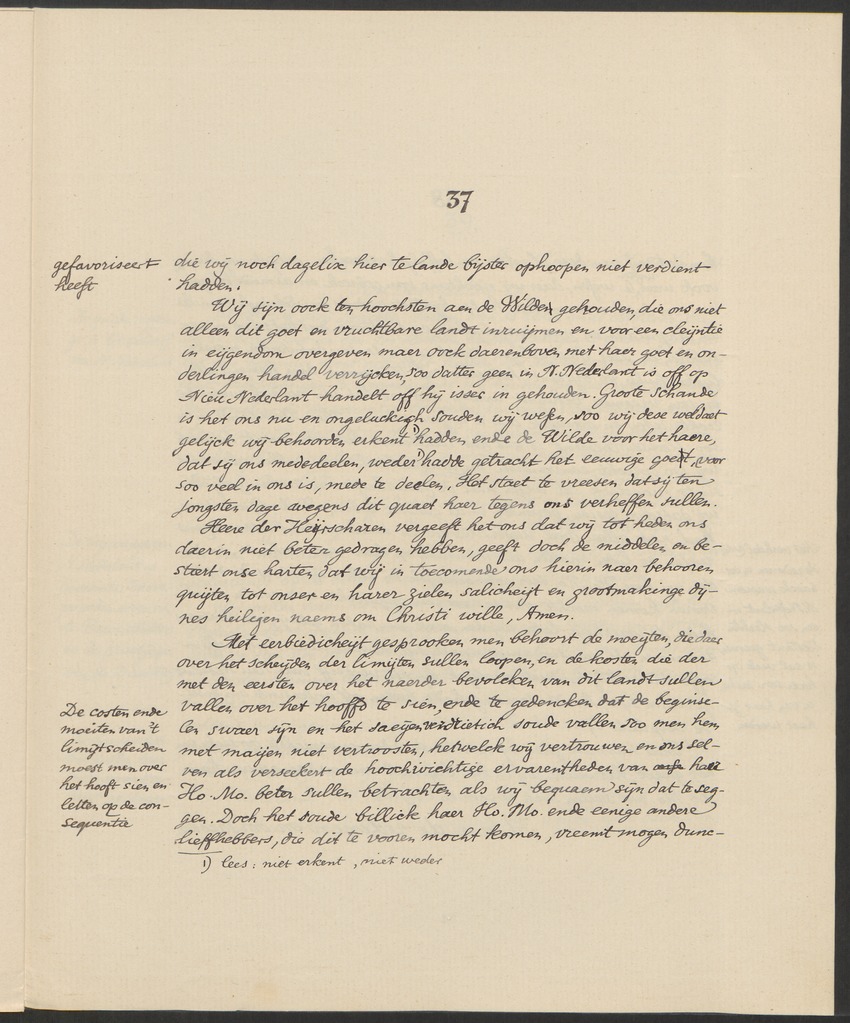 37
gefavoriseert
heeft
die wij noch dagelix hier te lande bijster ophoopen niet verdient
hadden.
Wij sijn oock ten hoochsten aen de Wilden gehouden, die ons niet
alleen dit goet en vruchtbare landt inruijmen en voor een cleijntie
in eijgendom overgeven maer oock daerenboven met haer goet en on-
derlingen handel verrijcken, soo datter geen in N. Nederlant is off op
Nieu Nederlant handelt off hij isser in gehouden. Groote schande
is het ons nu en ongeluckigh souden wij wesen, soo wij dese weldaet
gelijck wij behoorden erkent 1) hadden ende de Wilde voor het haere,
dat sij ons mededeelen, weder 1) hadde getracht het eeuwige goet, voor
soo veel in ons is, mede te deelen. Het staet te vreesen dat sij ten
jongsten dage wegens dit quaet haer tegens ons verheffen sullen.
Heere der Heijrscharen vergeeft het ons dat wij tot heden ons
daerin niet beter gedragen hebben, geeft doch de middelen en be-
stiert onse harten dat wij in toecomende ons hierin naer behooren
quijten tot onser en harer zielen salicheijt en grootmakinge dij-
nes heiligen naems om Christi wille, Amen.
Met eerbiedicheijt gesprooken men behoort de moeijten, die daer
over het scheijden der limijten sullen loopen, en de kosten die der
met den eersten over het naerder bevolcken van dit landt sullen
vallen over het hooffd te sien, ende te gedencken dat de beginse-
len swaer sijn en het saeijen verdrietich soude vallen soo men hem
met maijen niet vertroosten, hetwelck wij vertrouwen en ons sel-
ven als verseekert de hoochwichtige ervarentheden van haer
Ho. Mo. beter sullen betrachten als wij bequaem sijn dat te seg-
gen. Doch het soude billick haer Ho. Mo. ende eenige andere
lieffhebbers, die dit te vooren mocht komen, vreemt mogen dunc-
De costen ende
moeiten van 't
limijtscheiden
moest men over
het hooft sien en
letten op de con-
sequentie
1) lees: niet erkent, niet weder